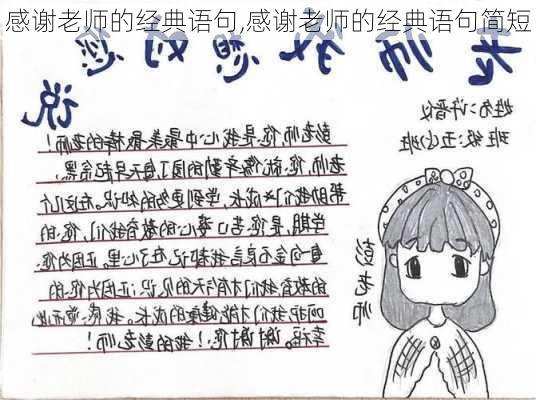 感谢老师的经典语句,感谢老师的经典语句简短
老师我想对您
说
姓名:许晋
班级:五
彭老师,您是我心中最美最棒的老师!
老师,您就像辛勤的园丁每天早起贪黑,
帮助我们成长,学到更多的知识。在这几个
学期,是您苦口婆心的教育我们,您的
每句金玉良言我都记在了心里。正因为您
的教育我们才有今天的见识;正因为您的
呵护我们才能健康的成长。我感觉
幸福。谢谢您!我的彭老师!
彭老师